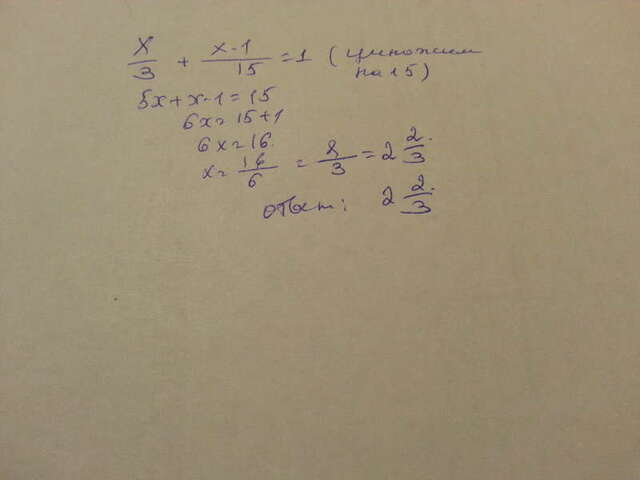 x/3 + x-1/15 = 1 (умножим
на 15)
5x+x-1=15
6x=15+1
6x=16.
x= 16/6 = 8/3 = 2 2/3.
ответ: 2 2/3.